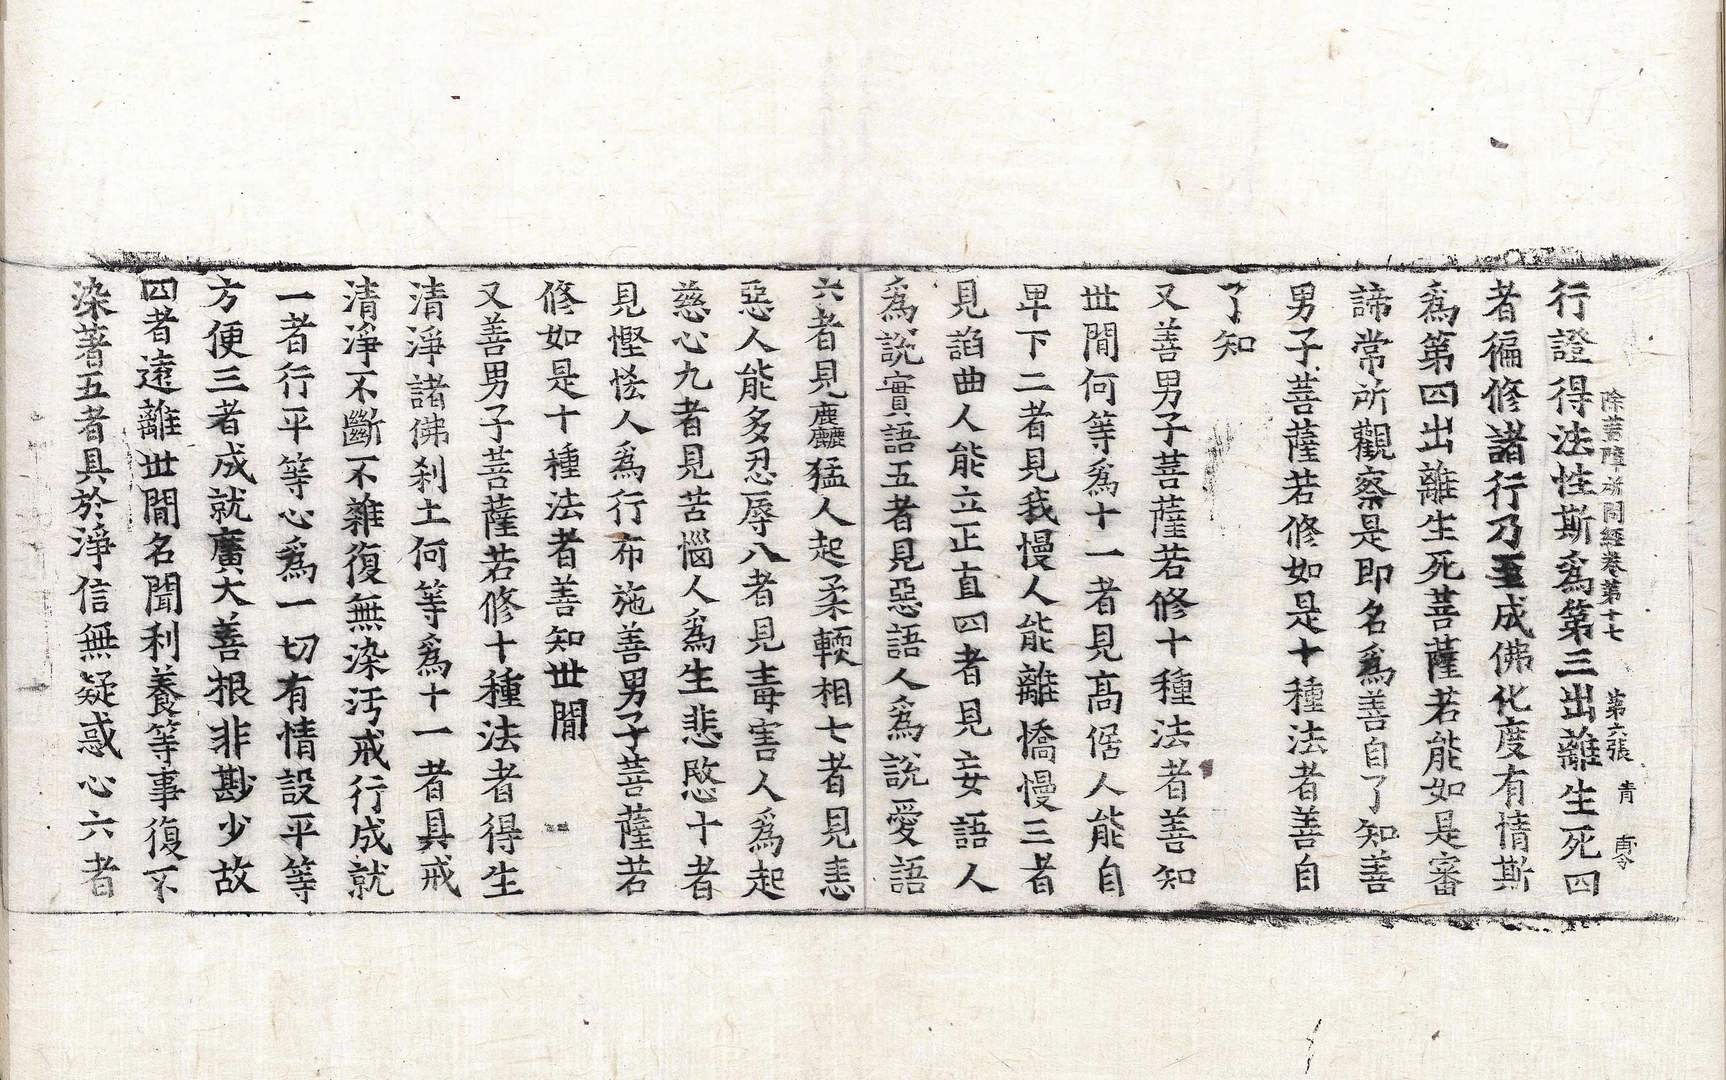 除蓋障所問經卷第十七　第六張　青
行證得法性斯爲第三出離生死四
者徧修諸行乃至成佛化度有情斯
爲第四出離生死菩薩若能如是審
諦常所觀察是即名爲善自了知善
男子菩薩若修如是十種法者善自
了知
又善男子菩薩若修十種法者善知
世間何等爲十一者見高倨人能自
卑下二者見我慢人能離憍慢三者
見諂曲人能立正直四者見妄語人
爲說實語五者見惡語人爲說愛語
六者見麤猛人起柔輭相七者見恚
惡人能多忍辱八者見毒害人爲起
慈心九者見苦惱人爲生悲愍十者
見慳悋人爲行布施善男子菩薩若
修如是十種法者善知世間
又善男子菩薩若修十種法者得生
清淨諸佛刹土何等爲十一者具戒
清淨不斷不雜復無染汚戒行成就
一者行平等心爲一切有情設平等
方便三者成就廣大善根非尠少故
四者遠離世間名聞利養等事復不
染著五者具於淨信無疑惑心六者